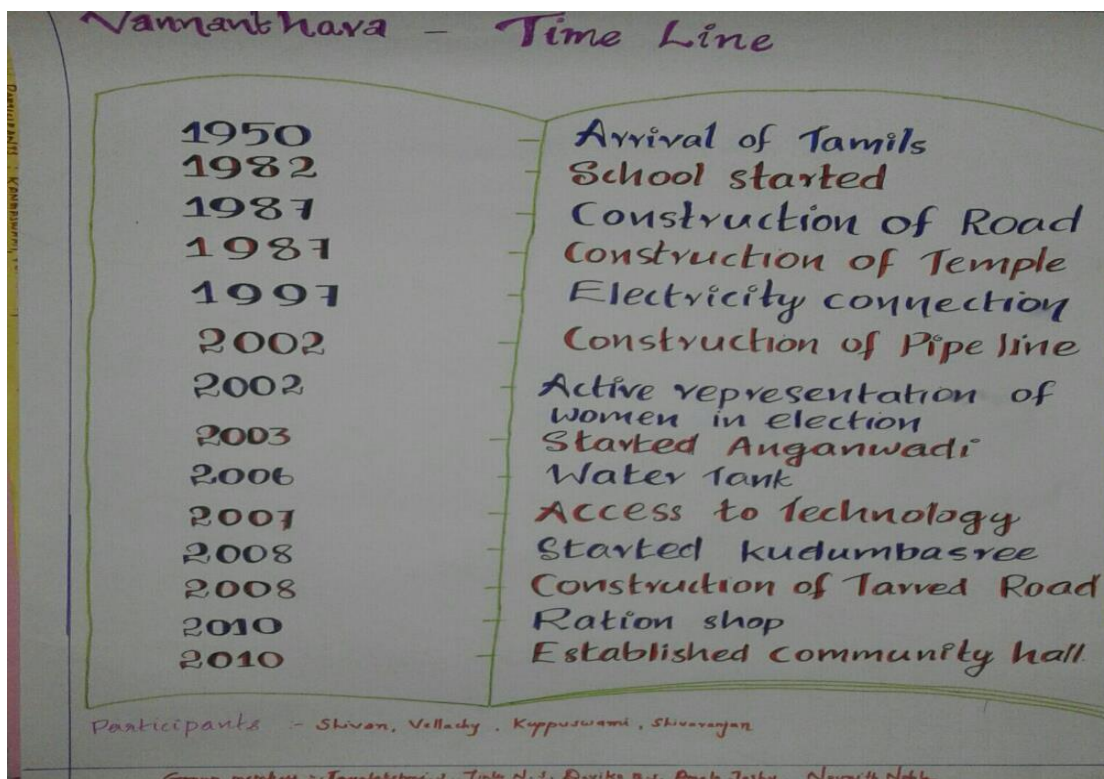 Vannanthara - Time Line
1950 - Arrival of Tamils
1982 - School started
1987 - Construction of Road
1987 - Construction of Temple
1997 - Electricity connection
2002 - Construction of Pipe line
2002 - Active representation of
women in election
2003 - Started Anganwadi
2006 - Water Tank
2007 - Access to Technology
2008 - Started kudumbasree
2008 - Construction of Tarred Road
2010 - Ration shop
2010 - Established community hall
Participants :- Shivan, Vellachy, Kuppuswami, Shivaranjan